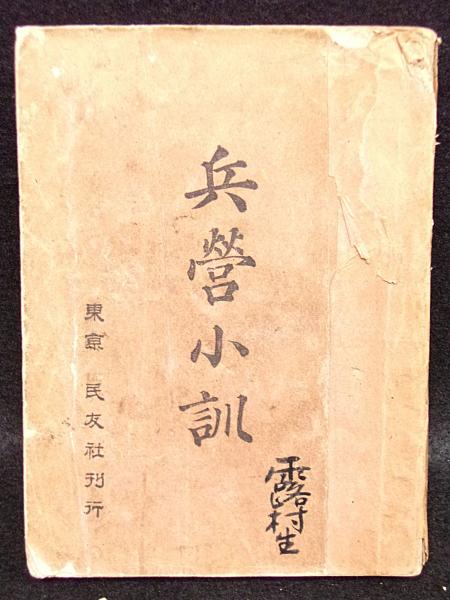 兵營小訓
東京 民友社刊行
露村生